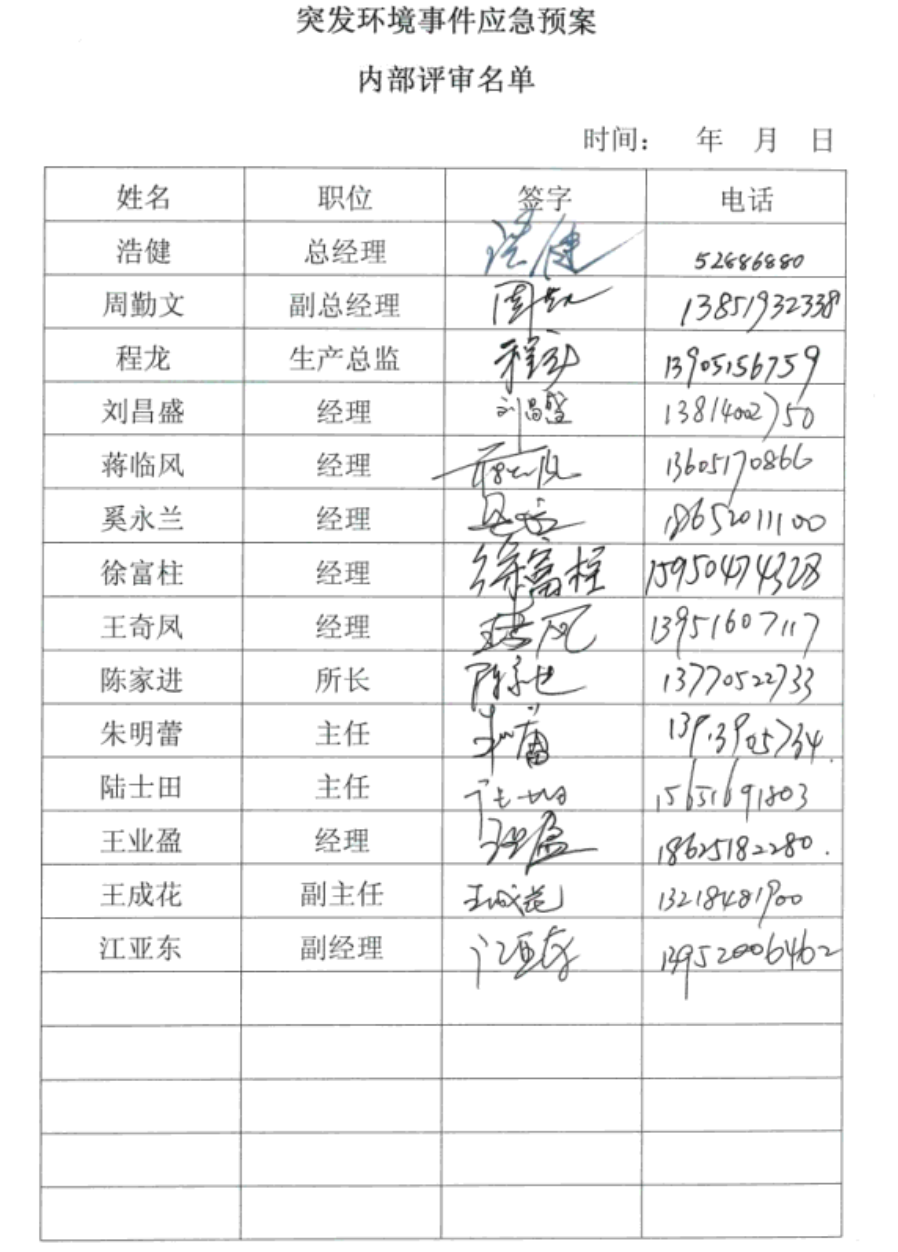 突发环境事件应急预案
内部评审名单
时间： 年 月 日
姓名 职位 签字 电话
浩健 总经理 浩健 52886880
周勤文 副总经理 13851932338
程龙 生产总监 程龙 13905156759
刘昌盛 经理 刘昌盛 13814002750
蒋临风 经理 13605170866
奚永兰 经理 18652011100
徐富柱 经理 徐富柱 15950474328
王奇凤 经理 13951607117
陈家进 所长 陈家进 13770522733
朱明蕾 主任 13913905734
陆士田 主任 15651691803
王业盈 经理 王业盈 18625182280
王成花 副主任 王成花 13218481900
江亚东 副经理 江亚东